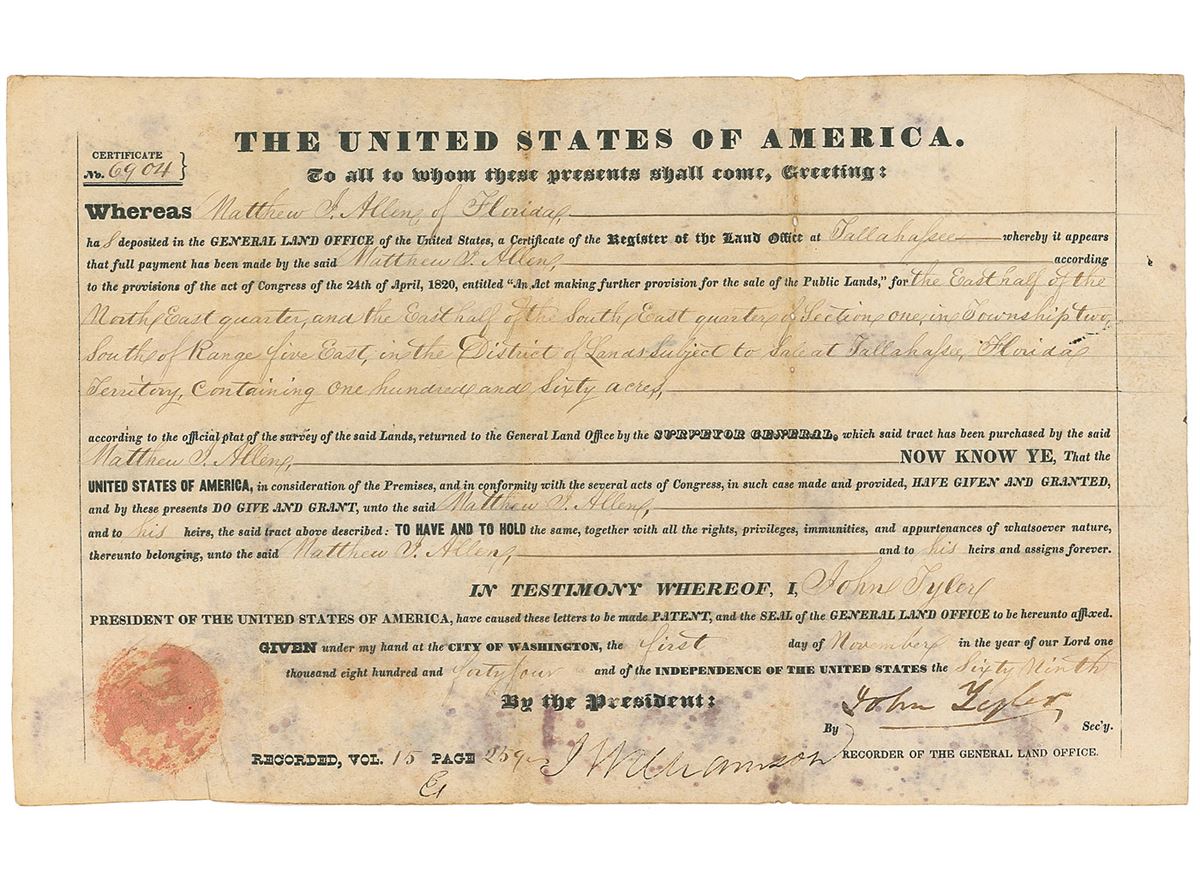 THE UNITED STATES OF AMERICA.
CERTIFICATE
No. 6904 }
To all to whom these presents shall come, Greeting:
Whereas Matthew J. Allen, of Florida,
ha s deposited in the GENERAL LAND OFFICE of the United States, a Certificate of the Register of the Land Office at Tallahassee whereby it appears
that full payment has been made by the said Matthew J. Allen, according
to the provisions of the act of Congress of the 24th of April, 1820, entitled "An Act making further provision for the sale of the Public Lands," for the East half of the
North East quarter, and the East half of the South East quarter of Section one, in Township two,
South of Range five East, in the District of Lands subject to Sale at Tallahassee, Florida
Territory, Containing one hundred and sixty acres,
according to the official plat of the survey of the said Lands, returned to the General Land Office by the SURVEYOR GENERAL, which said tract has been purchased by the said
Matthew J. Allen, NOW KNOW YE, That the
UNITED STATES OF AMERICA, in consideration of the Premises, and in conformity with the several acts of Congress, in such case made and provided, HAVE GIVEN AND GRANTED,
and by these presents DO GIVE AND GRANT, unto the said Matthew J. Allen,
and to his heirs, the said tract above described: TO HAVE AND TO HOLD the same, together with all the rights, privileges, immunities, and appurtenances of whatsoever nature,
thereunto belonging, unto the said Matthew J. Allen, and to his heirs and assigns forever.
IN TESTIMONY WHEREOF, I, John Tyler
PRESIDENT OF THE UNITED STATES OF AMERICA, have caused these letters to be made PATENT, and the SEAL of the GENERAL LAND OFFICE to be hereunto affixed.
GIVEN under my hand at the CITY OF WASHINGTON, the first day of November in the year of our Lord one
thousand eight hundred and forty four and of the INDEPENDENCE OF THE UNITED STATES the Sixty Ninth
By the President: John Tyler
By Sec'y.
RECORDED, VOL. 15 PAGE 259 J Williamson RECORDER OF THE GENERAL LAND OFFICE.